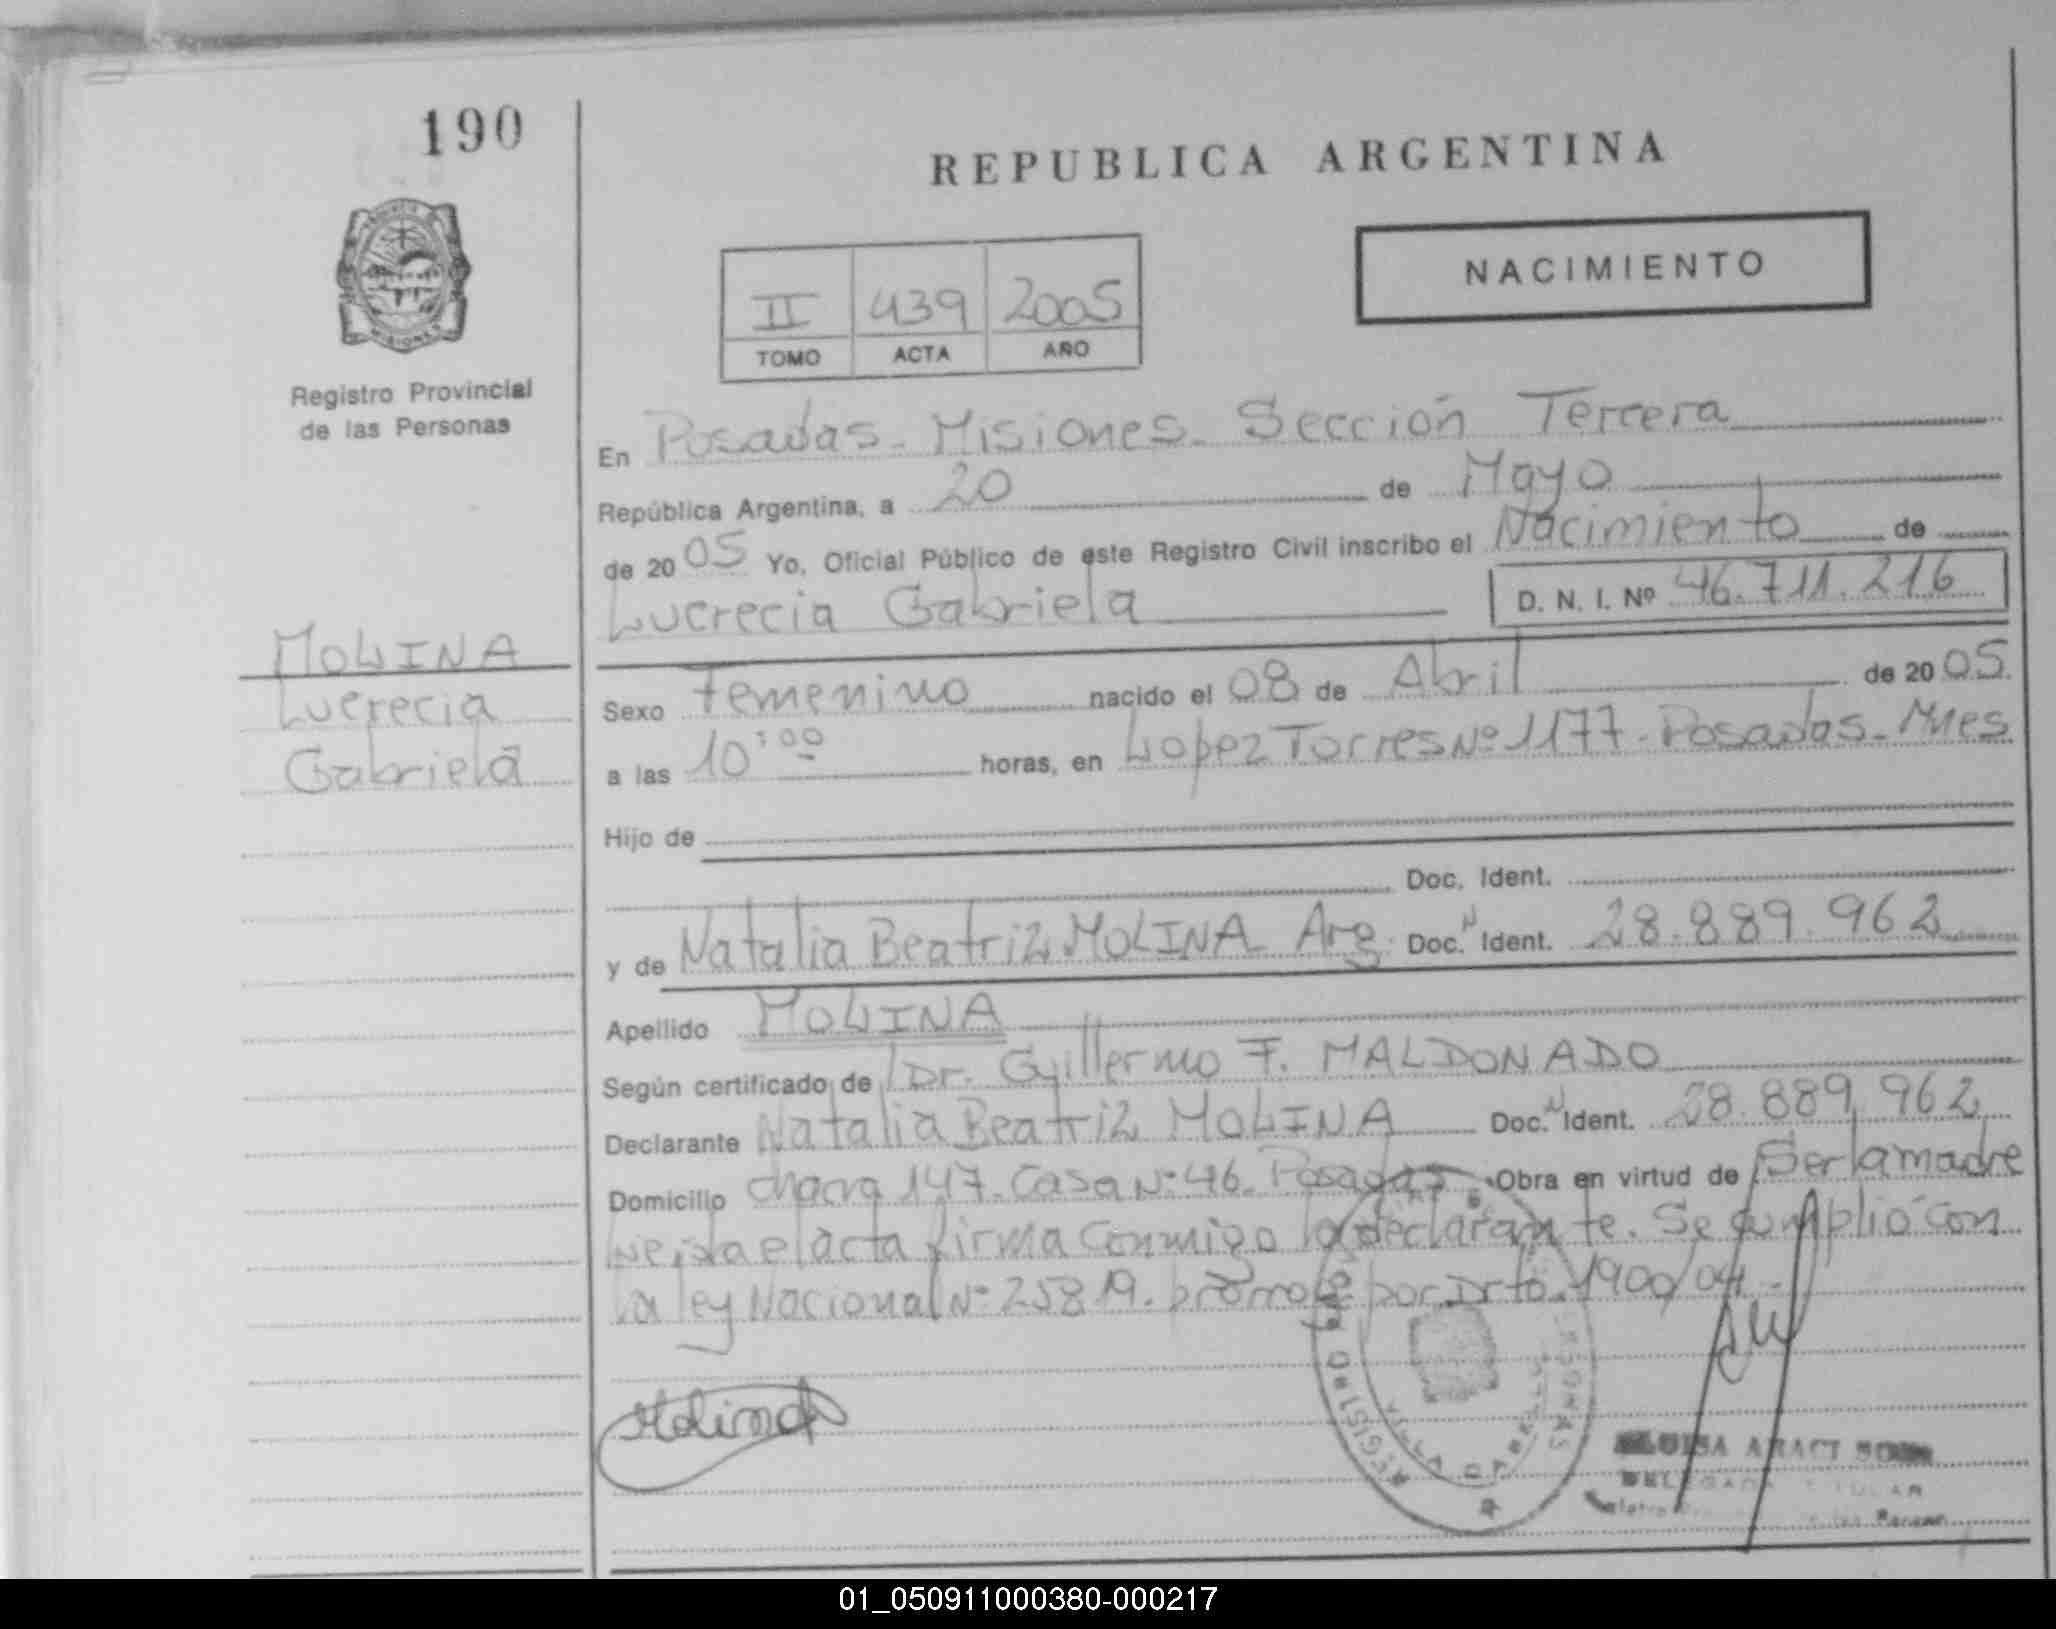 190
REPUBLICA ARGENTINA
NACIMIENTO
II 439 2005
TOMO ACTA AÑO
Registro Provincial
de las Personas
En Posadas - Misiones - Sección Tercera
República Argentina, a 20 de Mayo
de 2005 Yo, Oficial Público de este Registro Civil inscribo el Nacimiento de
Lucrecia Gabriela D. N. I. Nº 46.711.216
MOLINA
Lucrecia
Gabriela
Sexo Femenino nacido el 08 de Abril de 2005.
a las 10:00 horas, en Lopez Torres Nº 1177 - Posadas - Mnes
Hijo de
Doc. Ident.
y de Natalia Beatriz MOLINA Arg. Doc. N Ident. 28.889.962
Apellido MOLINA
Según certificado de Dr. Guillermo F. MALDONADO
Declarante Natalia Beatriz MOLINA Doc. N Ident. 28.889.962
Domicilio chacra 147 - Casa Nº 46 - Posadas Obra en virtud de Ser la madre
leida el acta firma conmigo la declarante. Se cumplió con
la ley Nacional Nº 25819. por Drto. 1900/04 -
Molina
REGISTRO
LUISA ARACI
01_050911000380-000217